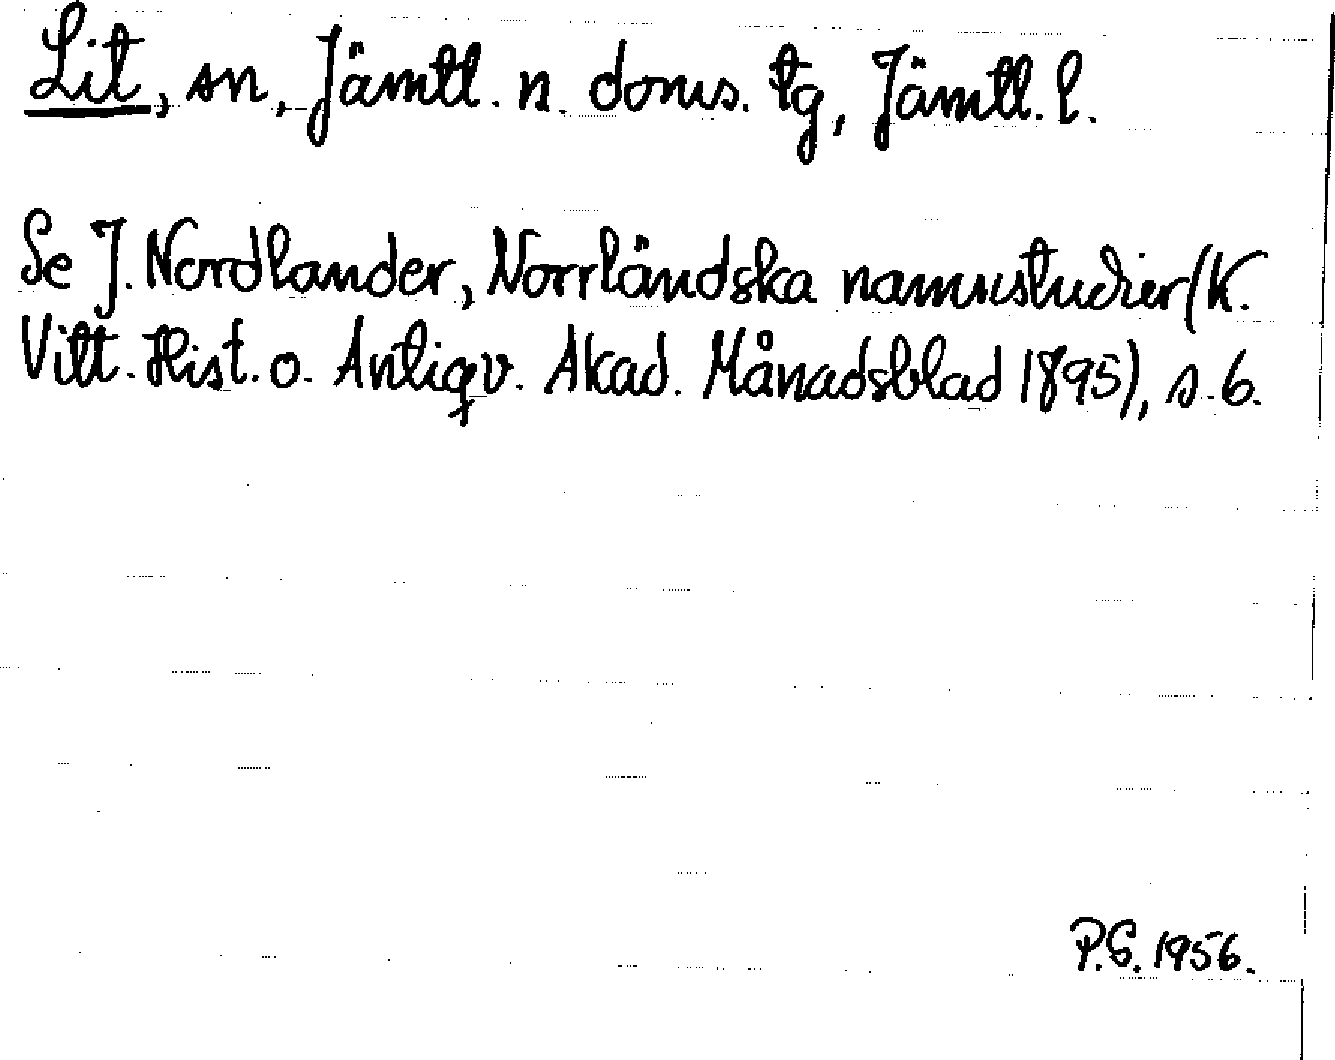 Lit, sn, Jämtl. n. doms. tg, Jämtl. l.
Se J. Nordlander, Norrländska namnstudier (K.
Vitt. Hist. o. Antiqv. Akad. Månadsblad 1895), s. 6.
P.G. 1956.